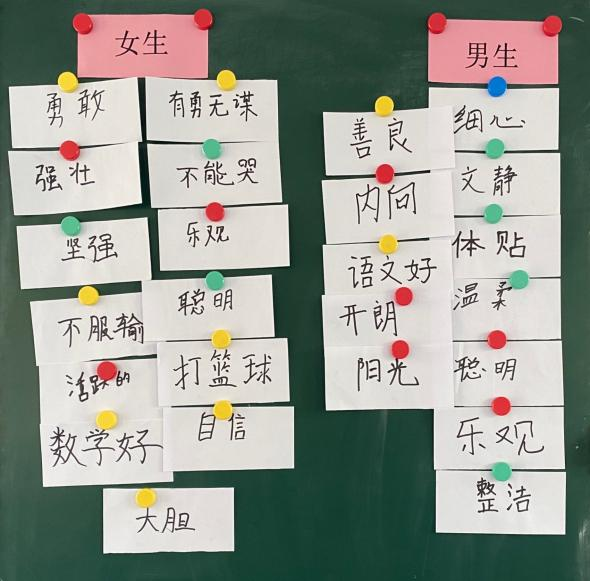 女生
男生
勇敢
有勇无谋
强壮
不能哭
坚强
乐观
不服输
聪明
活跃的
打篮球
数学好
自信
大胆
善良
细心
内向
文静
语文好
体贴
开朗
温柔
阳光
聪明
乐观
整洁